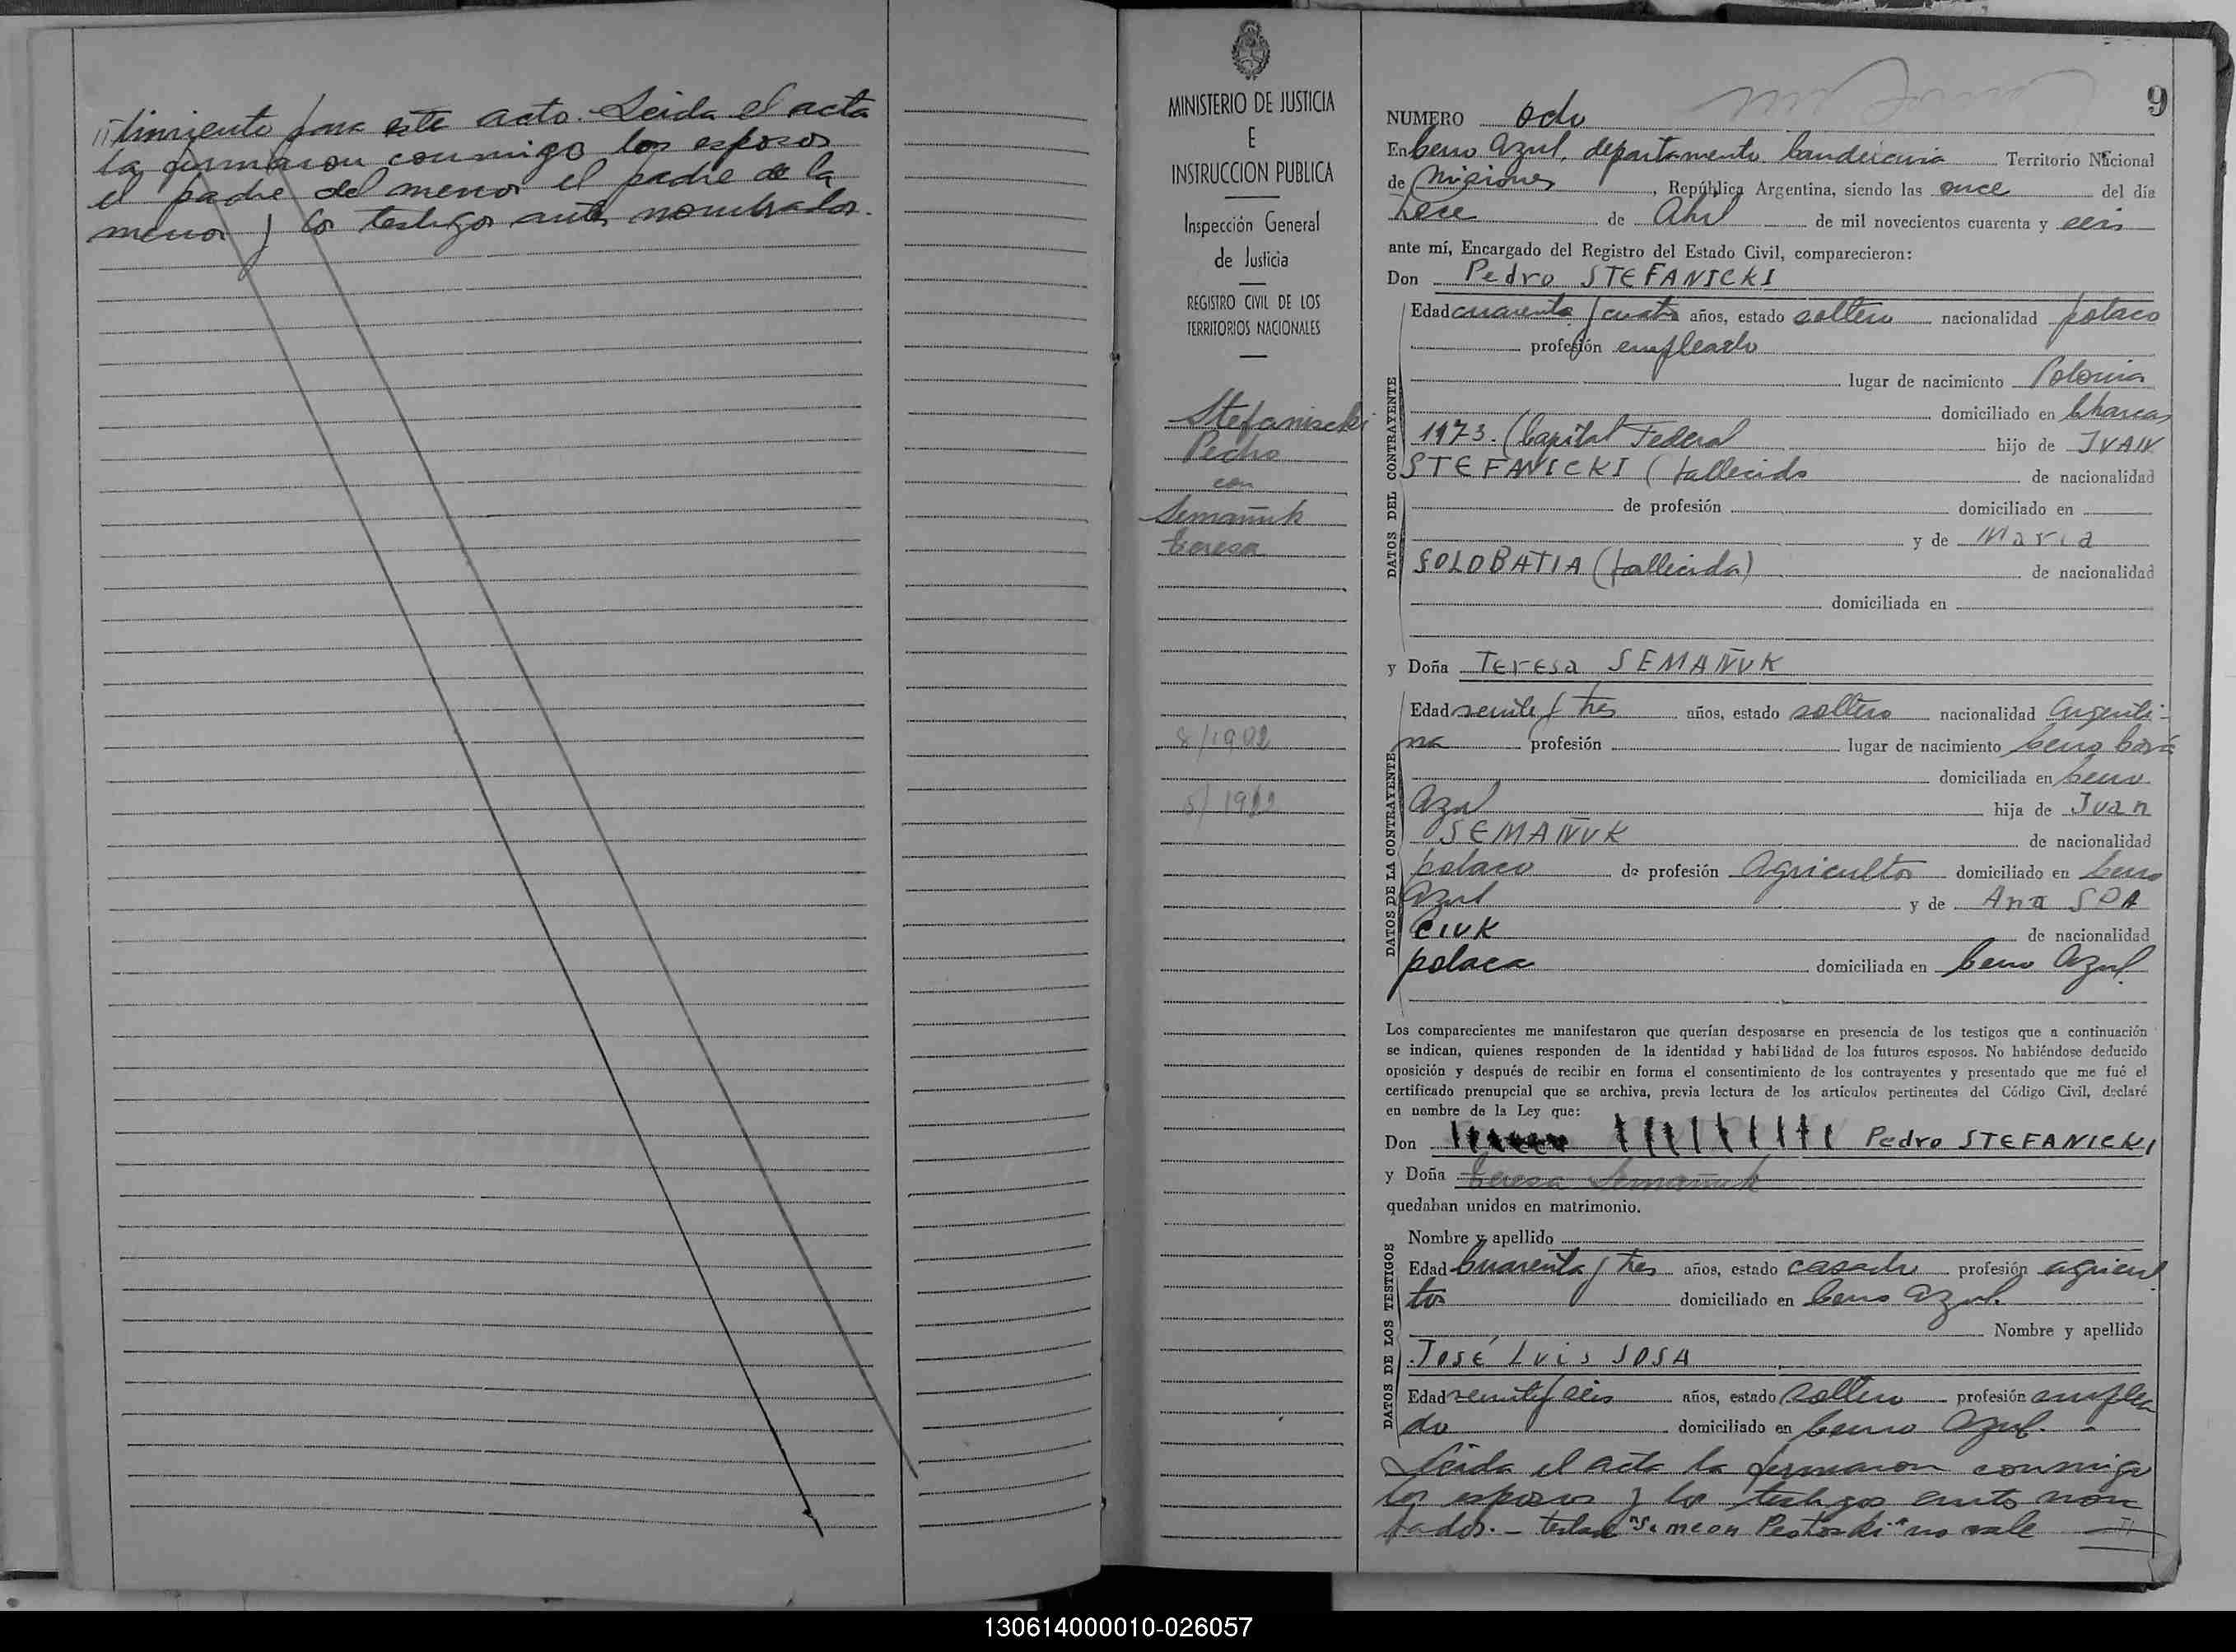 timiento para este acto. Leida el acta
la firmaron conmigo los esposos
el padre del menor el padre de la
menor y los testigos antes nombrados.
MINISTERIO DE JUSTICIA
E
INSTRUCCION PUBLICA
Inspección General
de Justicia
REGISTRO CIVIL DE LOS
TERRITORIOS NACIONALES
Stefaniscki
Pedro
con
Semañuk
Teresa
8/1902
9
NUMERO ocho
En Cerro Azul, departamento Candelaria Territorio Nacional
de Misiones, República Argentina, siendo las once del día
trece de Abril de mil novecientos cuarenta y seis
ante mí, Encargado del Registro del Estado Civil, comparecieron:
Don Pedro STEFANICKI
Edad cuarenta y cuatro años, estado soltero nacionalidad polaco
profesión empleado
lugar de nacimiento Polonia
domiciliado en Charcas
1973. (Capital Federal hijo de IVAN
STEFANICKI (fallecido de nacionalidad
de profesión domiciliado en
y de Maria
SOLOBATIA (fallecida) de nacionalidad
domiciliada en
DATOS DEL CONTRAYENTE
y Doña Teresa SEMAÑUK
Edad veinte y tres años, estado soltera nacionalidad argenti-
na profesión lugar de nacimiento Cerro Corá
domiciliada en Cerro
Azul hija de Juan
SEMAÑUK de nacionalidad
polaco de profesión agricultor domiciliado en Cerro
Azul y de Ana SOA
CIUK de nacionalidad
polaca domiciliada en Cerro Azul.
DATOS DE LA CONTRAYENTE
Los comparecientes me manifestaron que querían desposarse en presencia de los testigos que a continuación
se indican, quienes responden de la identidad y habilidad de los futuros esposos. No habiéndose deducido
oposición y después de recibir en forma el consentimiento de los contrayentes y presentado que me fué el
certificado prenupcial que se archiva, previa lectura de los artículos pertinentes del Código Civil, declaré
en nombre de la Ley que:
Don Pedro STEFANICKI
y Doña Teresa Semañuk
quedaban unidos en matrimonio.
Nombre y apellido
Edad Cuarenta y tres años, estado casado profesión agricul
tor domiciliado en Cerro Azul.
Nombre y apellido
José Luis SOSA
Edad veinte y seis años, estado soltero profesión emplea
do domiciliado en Cerro Azul. -
DATOS DE LOS TESTIGOS
Leida el acta la firmaron conmigo
los esposos y los testigos antes nom
bados. - testado "Simeon no vale
130614000010-026057